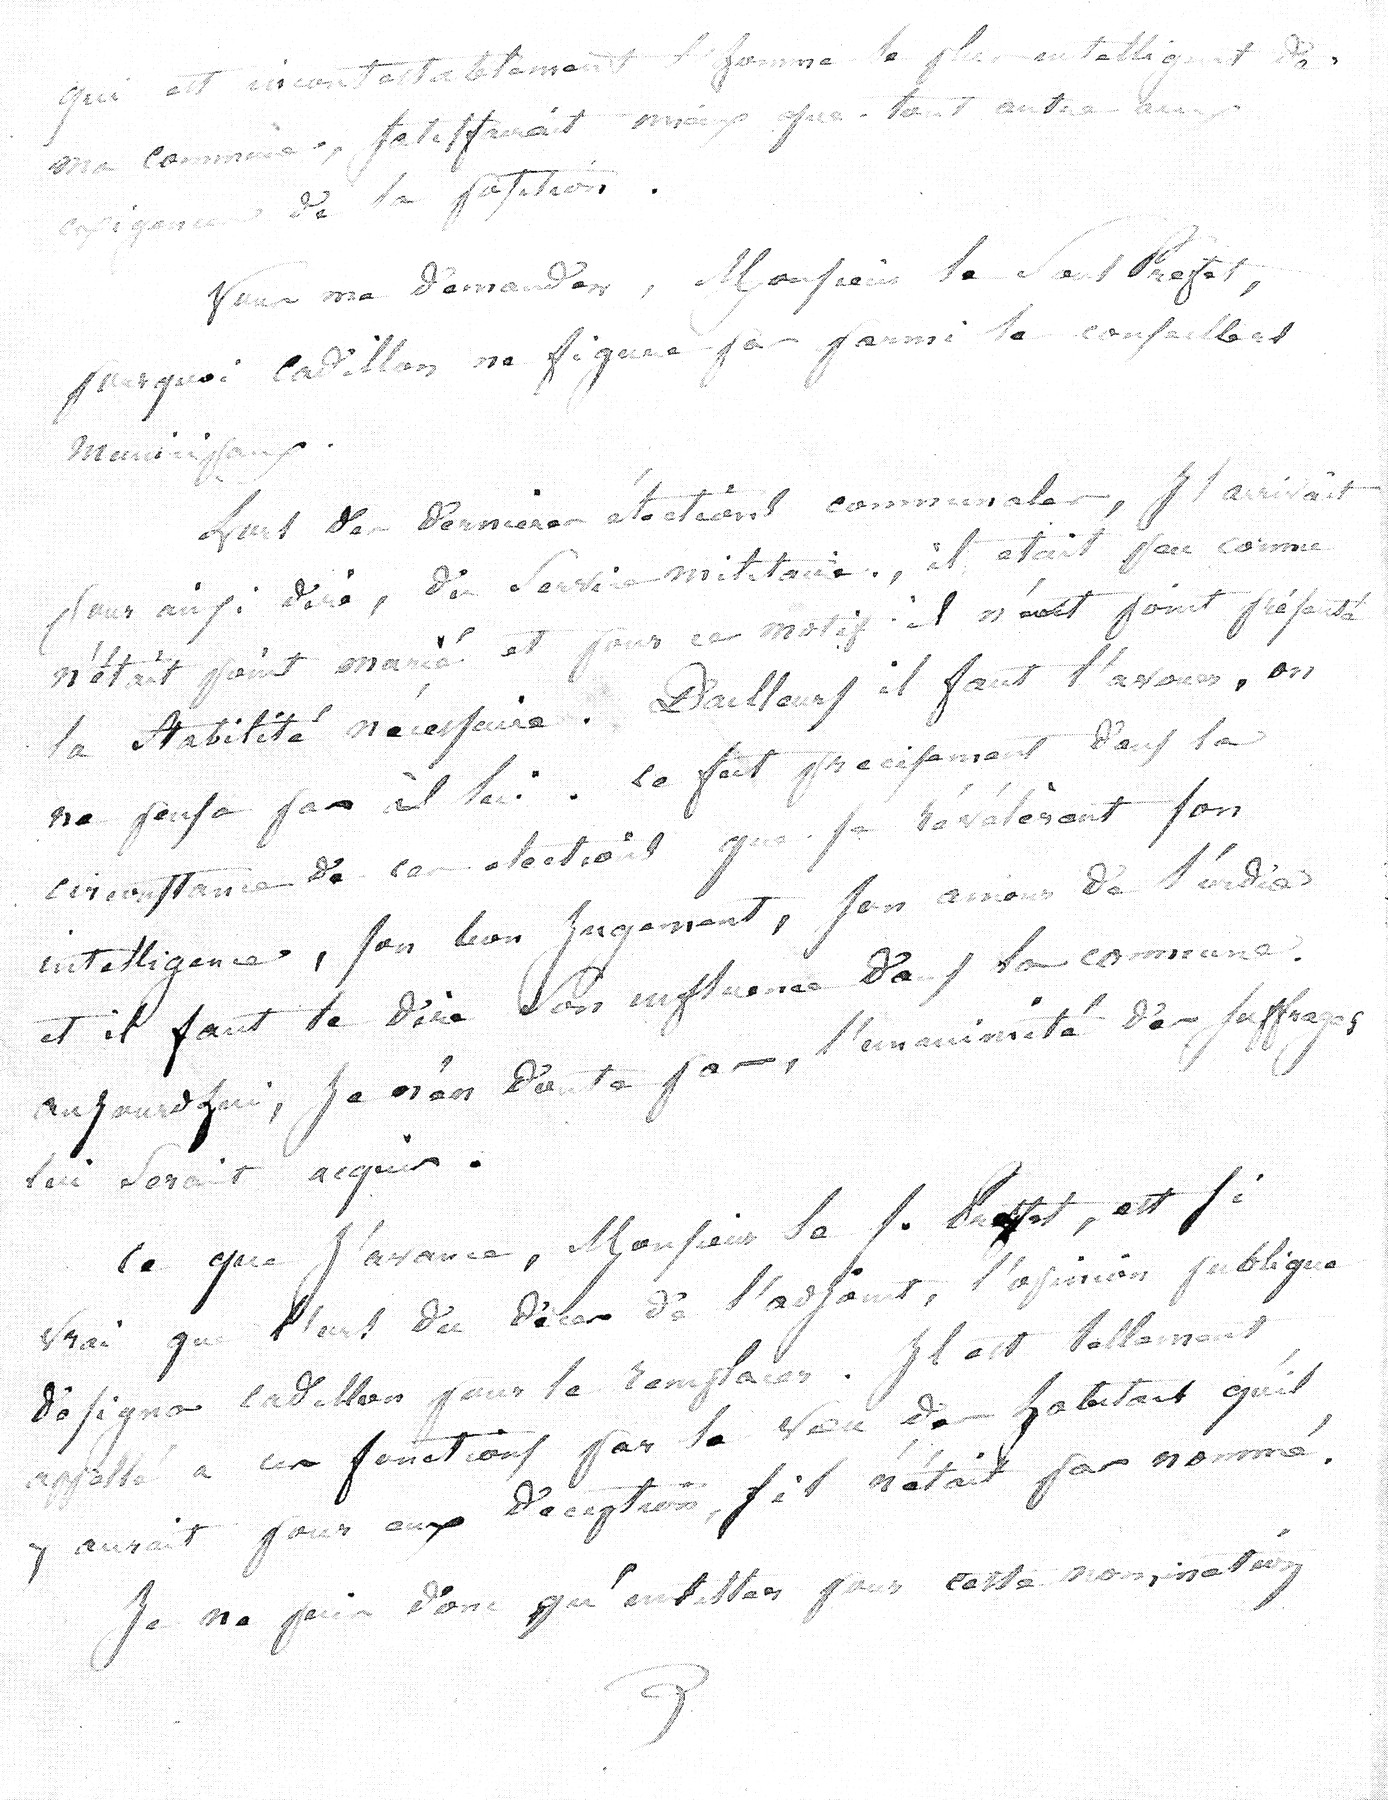 qui est incontestablement l'homme le plus intelligent de
ma commune, satisfairait mieux que tout autre aux
exigences de la position.
Vous me demandez, Monsieur le Sous Préfet,
pourquoi Cadillon ne figure pas parmi le conseillers
municipaux.
Lors des dernieres élections communales, Il arrivait
pour ainsi dire, du Service militaire, il etait peu connu
n'était point marié et pour ce motif il n'eut point présenté
la Stabilité nécessaire. D'ailleurs il faut l'avouer, on
ne pensa pas à lui. Ce fut precisement dans la
circonstance de ces elections que se révélèrent son
intelligence, son bon Jugement, son amour de l'ordre
et il faut le dire Son influence dans la commune.
aujourdhui, Je n'en doute pas, l'unanimité des suffrages
lui Serait acquis.
Ce que J'avance, Monsieur le S. Préfet, est si
vrai que lors du décès de l'adjoint, l'opinion publique
désigna Cadillon pour le remplacer. Il est tellement
appellé a ces fonctions par le vœu des habitats qu'il
y aurait pour eux déception, s'il n'était pas nommé.
Je ne puis donc qu'insister pour cette nomination